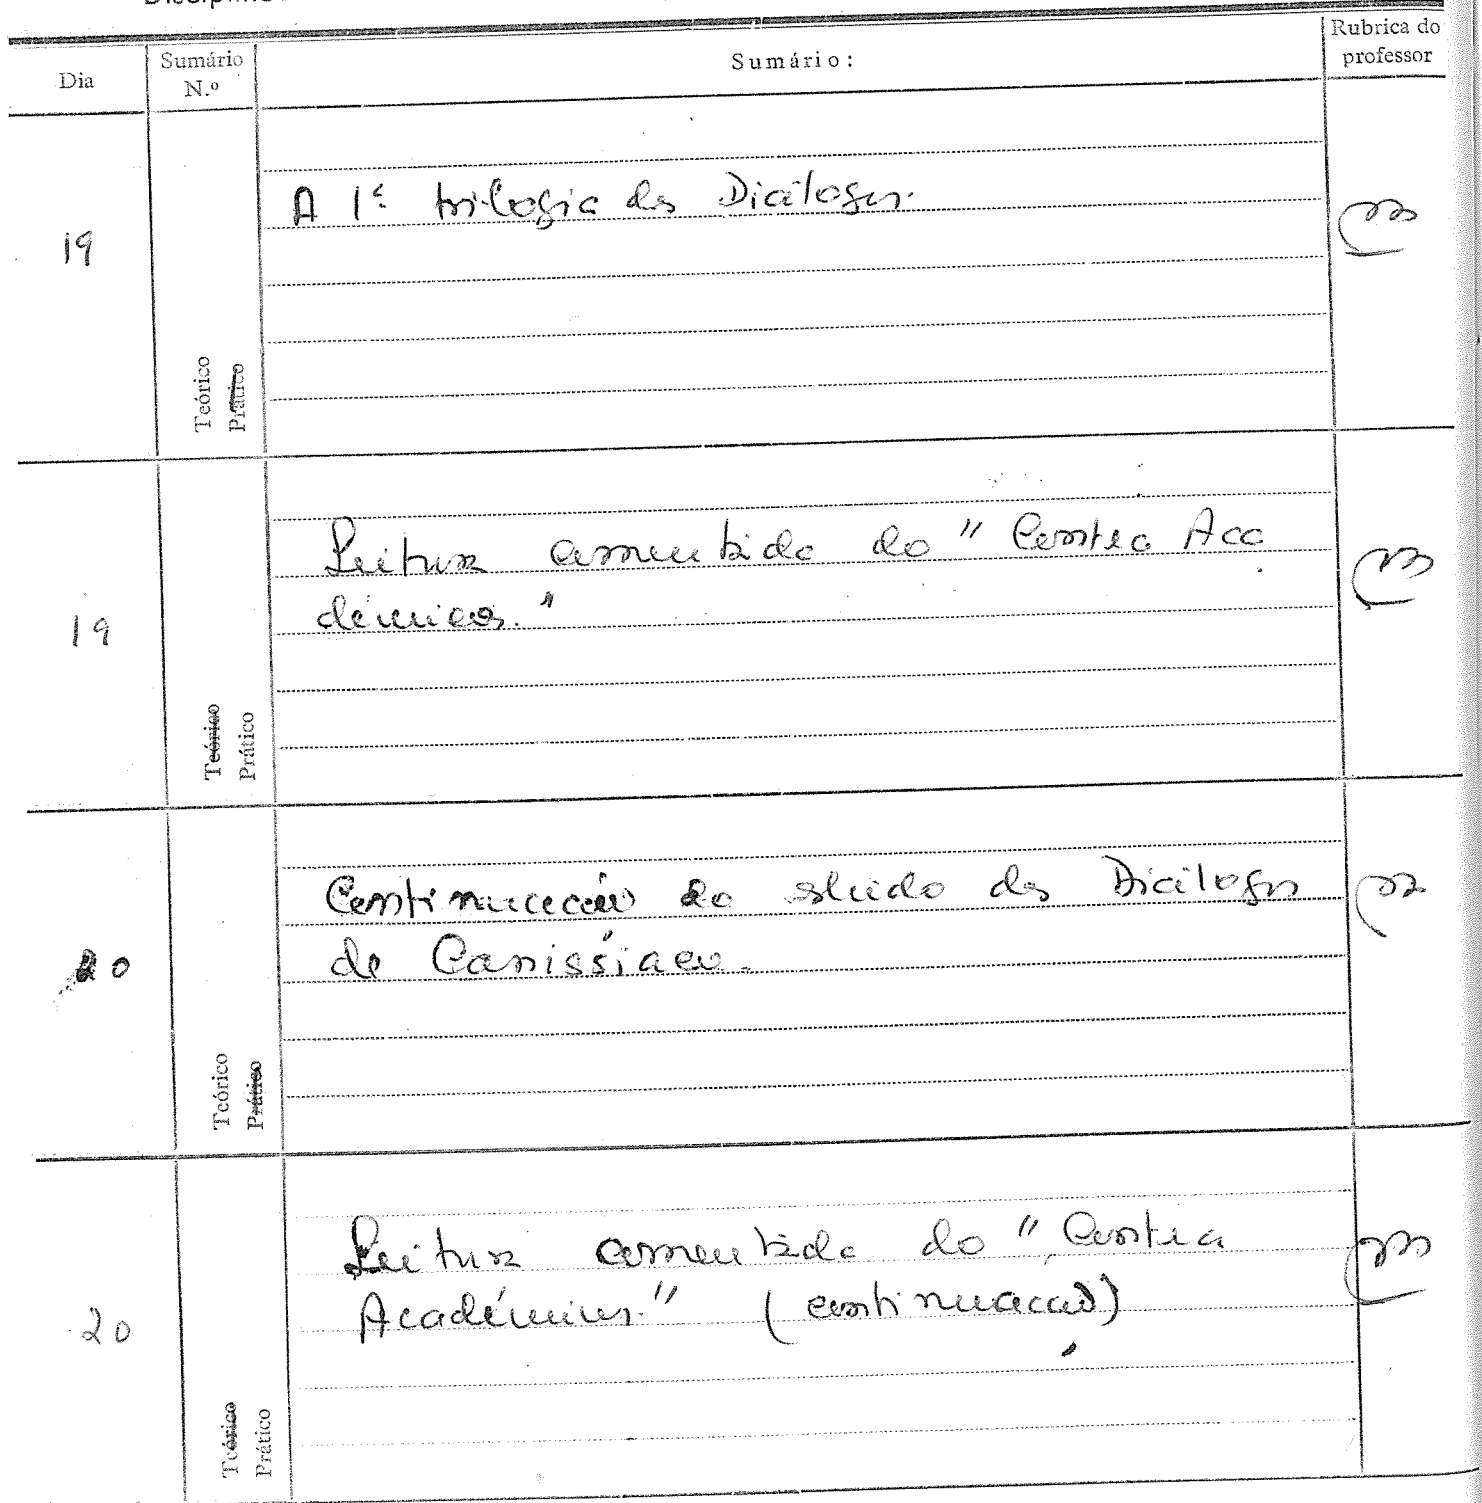 Dia
Sumário
N.º
Sumário:
Rubrica do
professor
19
A 1ª trilogia dos Diálogos.
Teórico
Prático
19
Leitura comentada do "Contra Aca
démicos."
Teórico
Prático
20
Continuação do estudo dos Diálogos
de Cassiciaco.
Teórico
Prático
20
Leitura comentada do "Contra
Académicos." (continuação)
Teórico
Prático